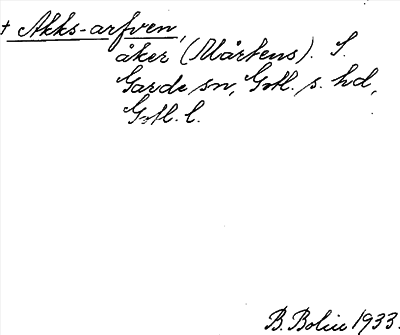 † Akks-arfven,
åker (Mårtens). S.
Garde sn, Gotl. s. hd,
Gotl. l.
B. Bolin 1933.